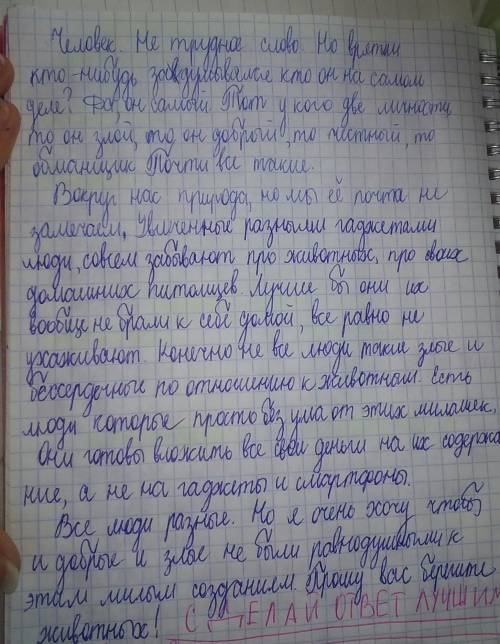 Человек. Не трудное слово. Но врятли
кто-нибудь задумывался кто он на самом
деле? Да, он самый. Тот у кого две личности,
то он злой, то он добрый, то честный, то
обманщик. Почти все такие.
Вокруг нас природа, но мы её почти не
замечаем, Увлеченные разными гаджетами
люди, совсем забывают про животных, про своих
домашних питомцев. Лучше бы они их
вообще не брали к себе домой, все равно не
ухаживают. Конечно не все люди такие злые и
бессердечные по отношению к животным. Есть
люди которые просто без ума от этих милашек.
Они готовы вложить все свои деньги на их содержа
ние, а не на гаджеты и смартфоны.
Все люди разные. Но я очень хочу чтобы
и добрые и злые не были равнодушными к
этим милым созданием. Прошу вас берегите
животных! СДЕЛАЙ ОТВЕТ ЛУЧШИМ